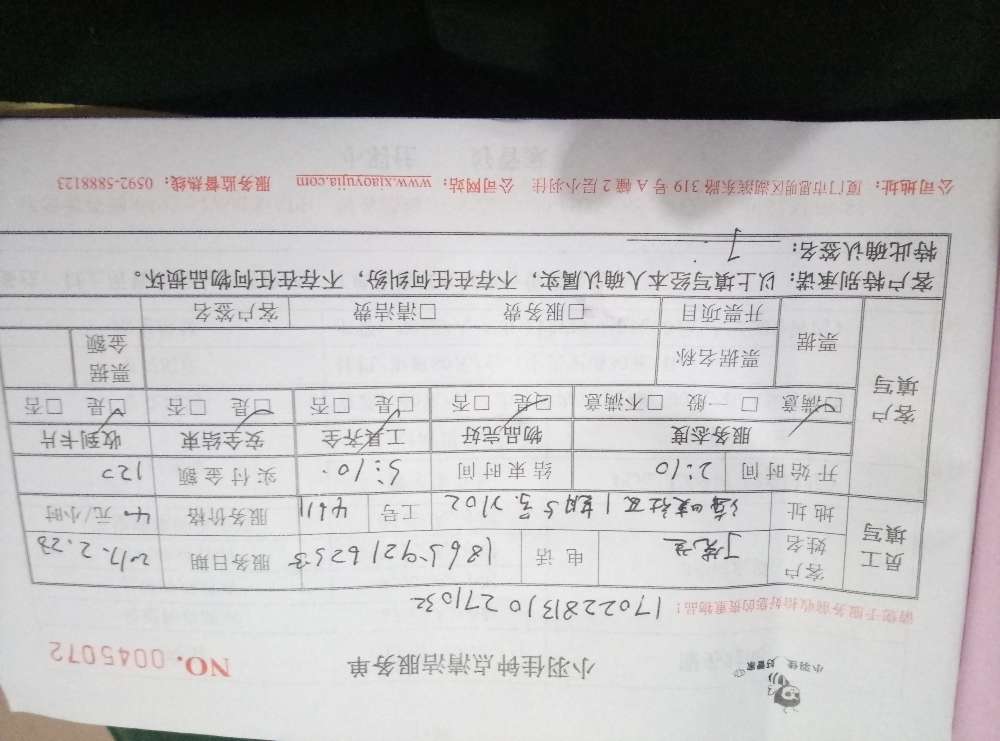 小羽佳 好管家
小羽佳钟点清洁服务单
NO. 0045072
请您于服务前收拾好您的贵重物品！
1702281310271032
员工填写 客户姓名 丁先生 电话 服务日期 2017.2.28
地址 工号 4611 服务价格 40 元/小时
客户填写 开始时间 2:10 结束时间 5:10 实付金额 120
服务态度 物品完好 工具齐全 安全结束 收到卡片
□满意 □一般 □不满意 □是 □否 □是 □否 □是 □否 □是 □否
票据 票据名称 票据金额
开票项目 □服务费 □清洁费 客户签名
客户特别承诺：以上填写经本人确认属实，不存在任何纠纷，不存在任何物品损坏。
特此确认签名：丁
公司地址：厦门市思明区湖滨东路 319 号 A 幢 2 层小羽佳 公司网站：www.xiaoyujia.com 服务监督热线：0592-5888123